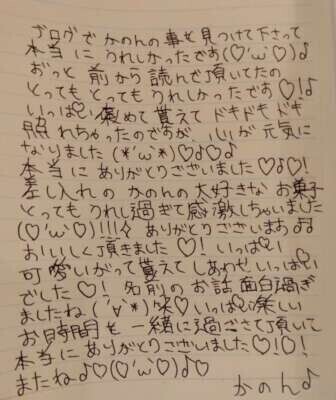 ブログでかのんの事を見つけて下さって
本当にうれしかったです(♡'ω'♡)♪
おっと前から読んで頂いてたの
とってもとってもうれしかったです♡!♪
いっぱい褒めて貰えてドキドキドキ
照れちゃったのですが 心が元気に
なりました(*'ω'*)♡♪♡♪
本当にありがとうございました♡♪♡!
差し入れのかのんの大好きなお菓子
とってもうれし過ぎて感激しちゃいました
(♡'ω'♡)!!!✧ ありがとうございますぁょょ
おいしく頂きました♡! いっぱい
可愛いがって貰えてしあわせいっぱい
でした♡! 名前のお話面白過ぎ
ましたね(*'∀'*)笑♡いっぱい楽しい
お時間を一緒に過ごさせて頂いて
本当にありがとうございました♡!♡!
またね♪♡(♡'ω'♡)♪♡
かのん♪